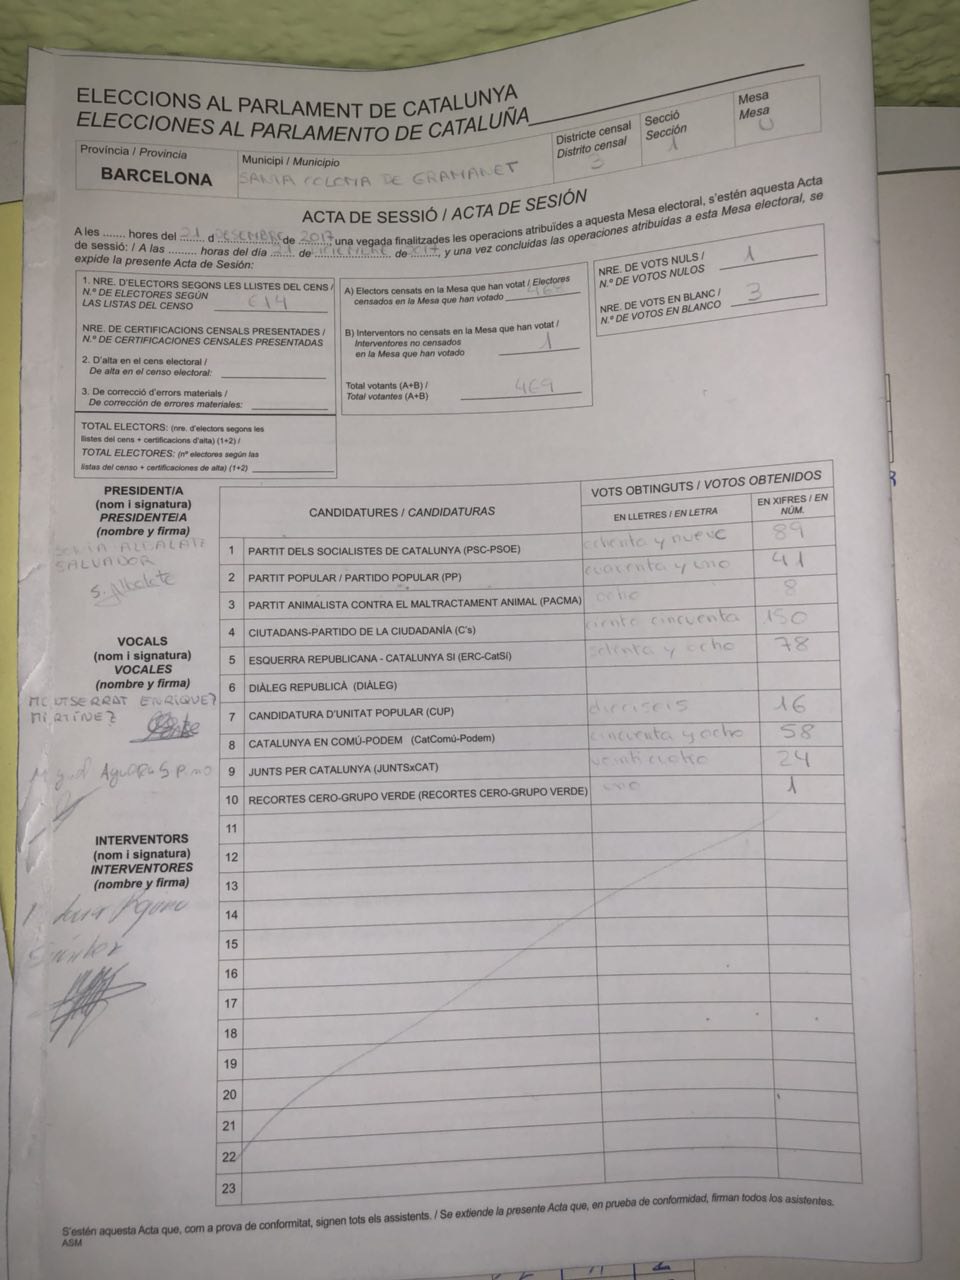 ELECCIONS AL PARLAMENT DE CATALUNYA
ELECCIONES AL PARLAMENTO DE CATALUÑA
Província / Provincia
BARCELONA
Municipi / Municipio
SANTA COLOMA DE GRAMANET
Districte censal
Distrito censal
3
Secció
Sección
1
Mesa
Mesa
U
ACTA DE SESSIÓ / ACTA DE SESIÓN
A les ....... hores del 21 d DESEMBRE de 2017 una vegada finalitzades les operacions atribuïdes a aquesta Mesa electoral, s'estén aquesta Acta
de sessió: / A las ......... horas del día 21 de DICIEMBRE de 2017, y una vez concluidas las operaciones atribuidas a esta Mesa electoral, se
expide la presente Acta de Sesión:
1. NRE. D'ELECTORS SEGONS LES LLISTES DEL CENS /
N.º DE ELECTORES SEGÚN
LAS LISTAS DEL CENSO 614
NRE. DE CERTIFICACIONS CENSALS PRESENTADES /
N.º DE CERTIFICACIONES CENSALES PRESENTADAS
2. D'alta en el cens electoral /
De alta en el censo electoral:
3. De correcció d'errors materials /
De corrección de errores materiales:
TOTAL ELECTORS: (nre. d'electors segons les
llistes del cens + certificacions d'alta) (1+2) /
TOTAL ELECTORES: (nº electores según las
listas del censo + certificaciones de alta) (1+2)
A) Electors censats en la Mesa que han votat / Electores
censados en la Mesa que han votado 468
B) Interventors no censats en la Mesa que han votat /
Interventores no censados
en la Mesa que han votado 1
Total votants (A+B) /
Total votantes (A+B) 469
NRE. DE VOTS NULS /
N.º DE VOTOS NULOS 1
NRE. DE VOTS EN BLANC /
N.º DE VOTOS EN BLANCO 3
PRESIDENT/A
(nom i signatura)
PRESIDENTE/A
(nombre y firma)
SONIA ALBALATE
SALVADOR
S. Albalate
VOCALS
(nom i signatura)
VOCALES
(nombre y firma)
MONTSERRAT ENRIQUEZ
MARTINEZ
INTERVENTORS
(nom i signatura)
INTERVENTORES
(nombre y firma)
CANDIDATURES / CANDIDATURAS
VOTS OBTINGUTS / VOTOS OBTENIDOS
EN LLETRES / EN LETRA
EN XIFRES / EN NÚM.
1 PARTIT DELS SOCIALISTES DE CATALUNYA (PSC-PSOE) ochenta y nueve 89
2 PARTIT POPULAR / PARTIDO POPULAR (PP) cuarenta y uno 41
3 PARTIT ANIMALISTA CONTRA EL MALTRACTAMENT ANIMAL (PACMA) ocho 8
4 CIUTADANS-PARTIDO DE LA CIUDADANÍA (C's) ciento cincuenta 150
5 ESQUERRA REPUBLICANA - CATALUNYA SÍ (ERC-CatSí) setenta y ocho 78
6 DIÀLEG REPUBLICÀ (DIÀLEG)
7 CANDIDATURA D'UNITAT POPULAR (CUP) dieciseis 16
8 CATALUNYA EN COMÚ-PODEM (CatComú-Podem) cincuenta y ocho 58
9 JUNTS PER CATALUNYA (JUNTSxCAT) veinticuatro 24
10 RECORTES CERO-GRUPO VERDE (RECORTES CERO-GRUPO VERDE) uno 1
11
12
13
14
15
16
17
18
19
20
21
22
23
S'estén aquesta Acta que, com a prova de conformitat, signen tots els assistents. / Se extiende la presente Acta que, en prueba de conformidad, firman todos los asistentes.
ASM